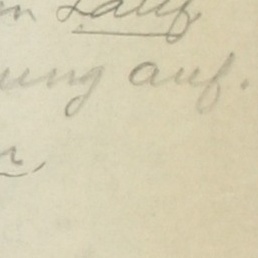 n Lauf
ung auf.
r,